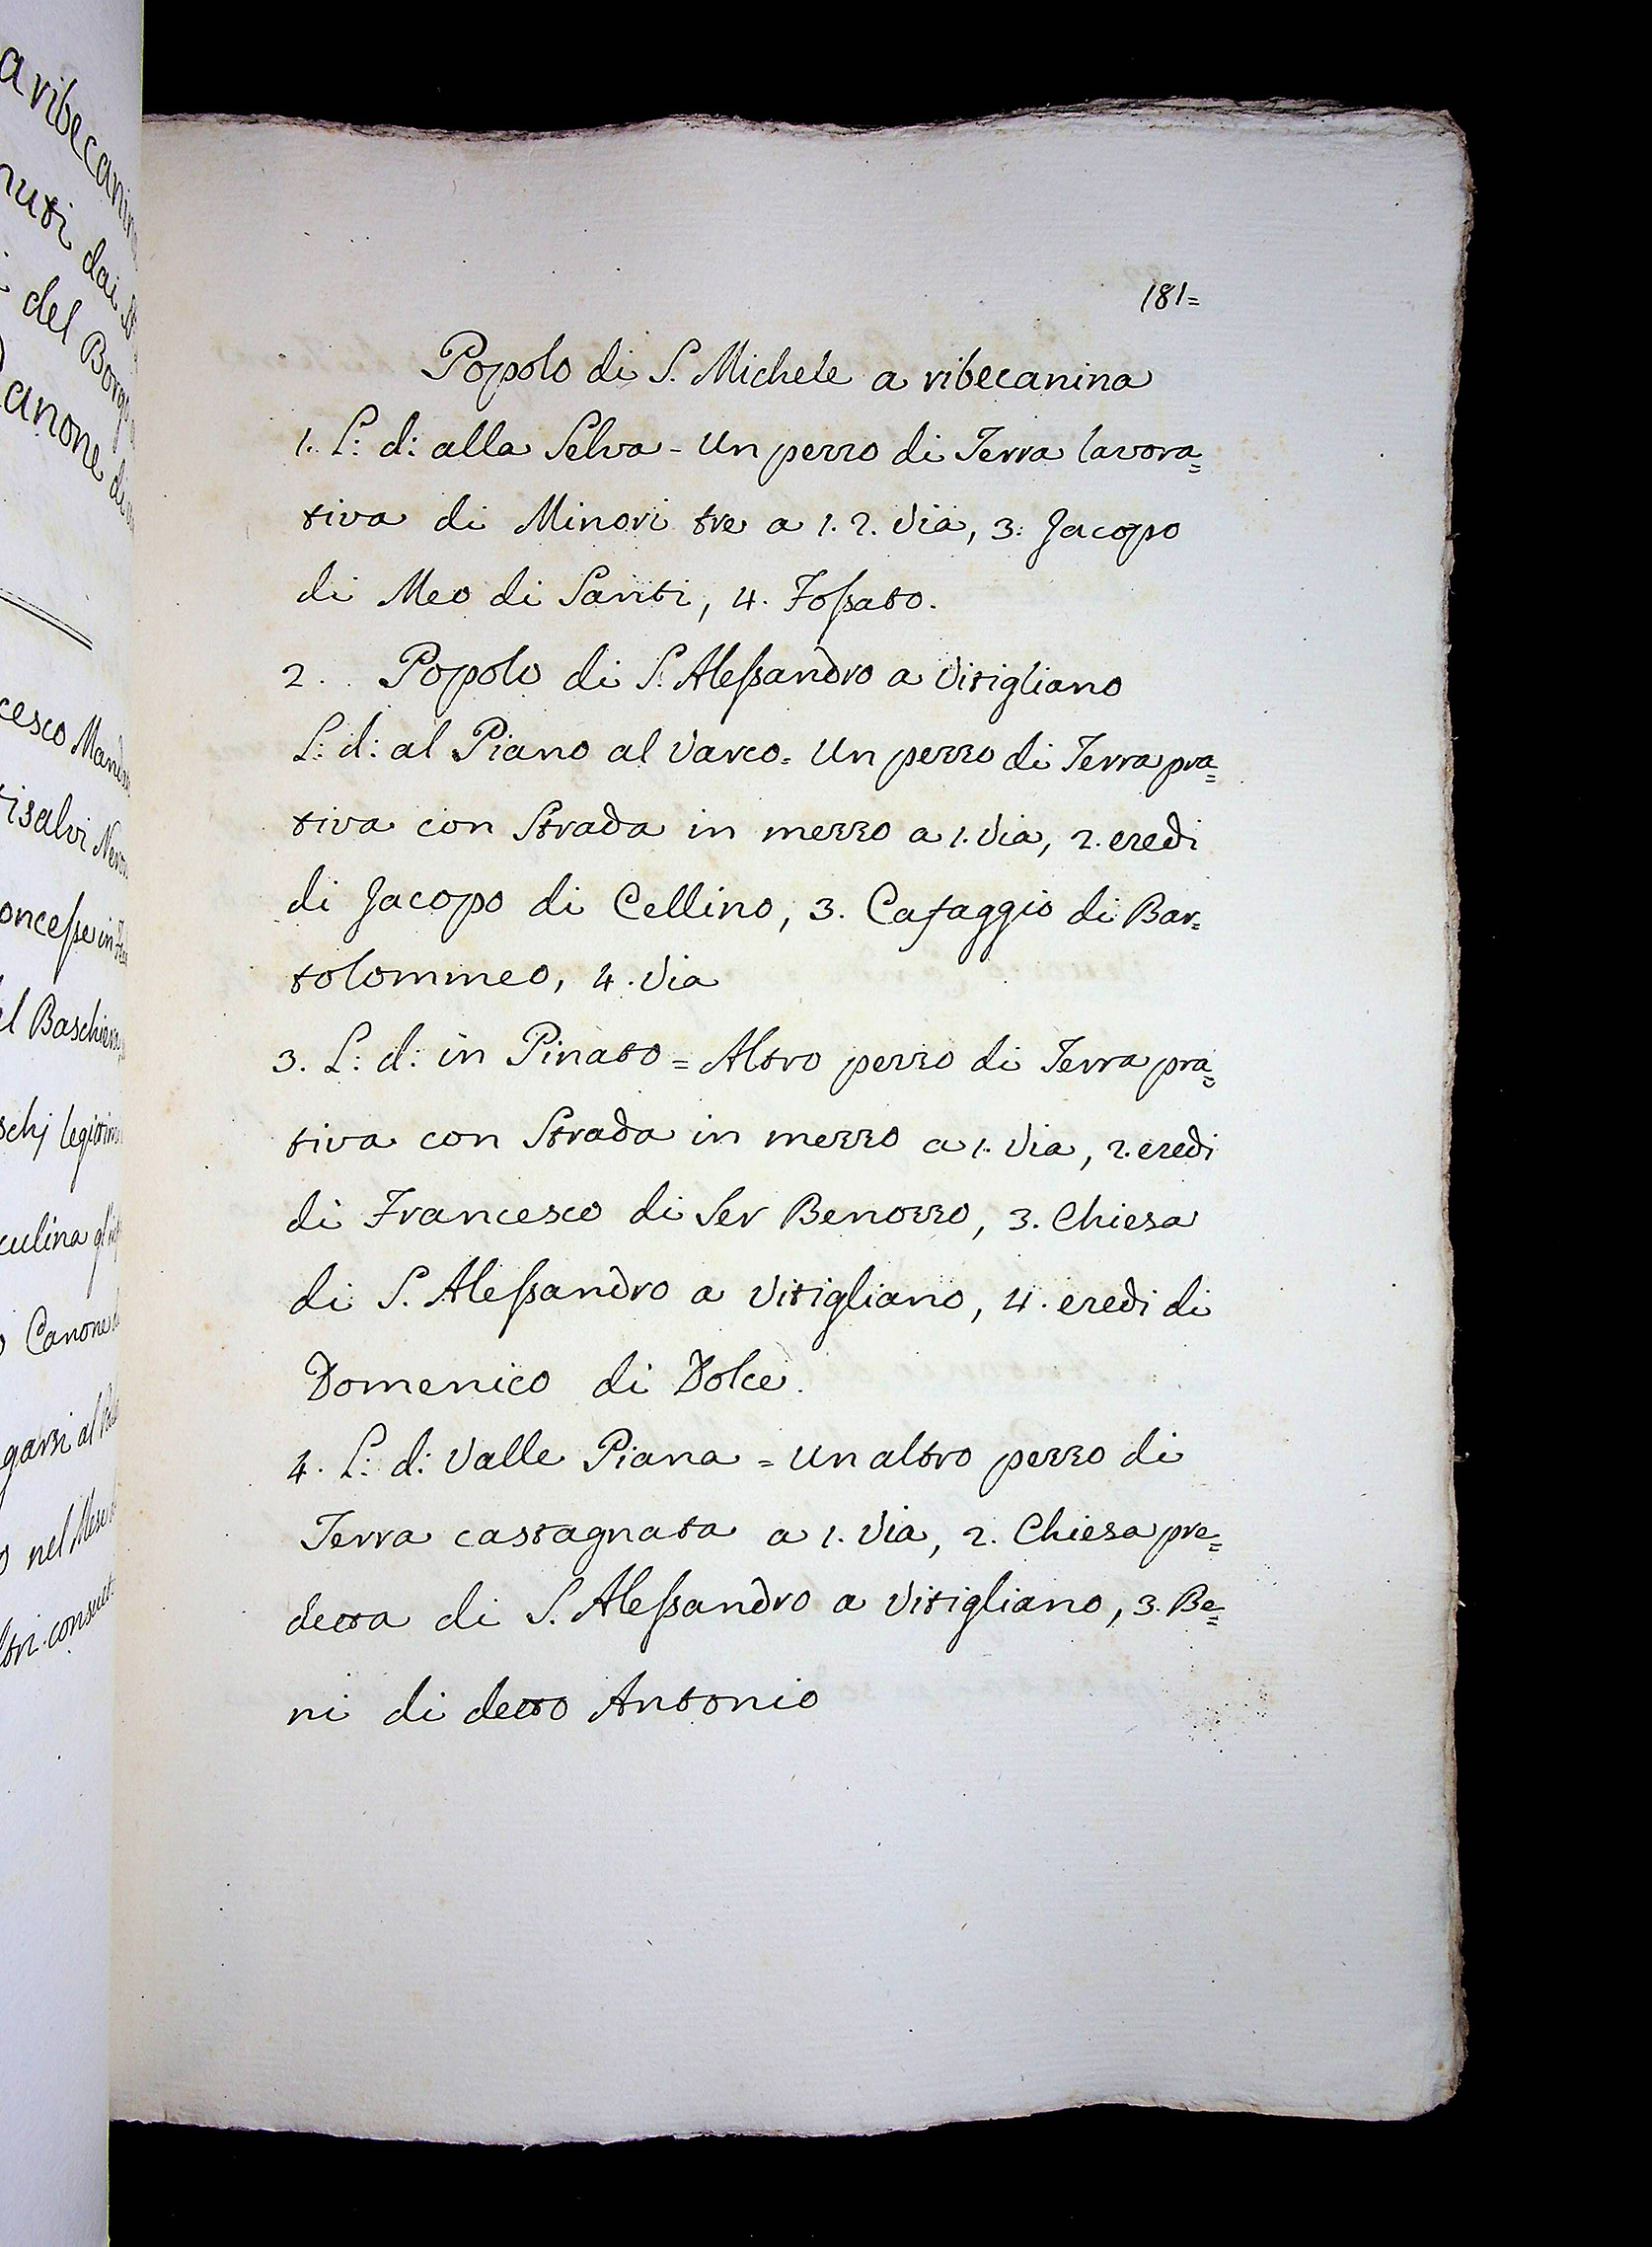 a ribecanin
nuti dai
del Borgo
Canone di
cesco Mand
tisalvi Nero
oncesse in
el Baschiera
schj legittim
culina gl'
o Canone
garsi al
o nel Mese
ltri consuet
181=
Popolo di S. Michele a ribecanina
1. L: d: alla Selva - Un pezzo di Terra lavora=
tiva di Minori tre a 1. 2. Via, 3. Jacopo
di Meo di Santi, 4. Fossato.
2. Popolo di S. Alessandro a Vitigliano
L: d: al Piano al Varco = Un pezzo di Terra pra=
tiva con Strada in mezzo a 1. Via, 2. eredi
di Jacopo di Cellino, 3. Cafaggio di Bar=
tolommeo, 4. Via
3. L: d: in Pinato = Altro pezzo di Terra pra=
tiva con Strada in mezzo a 1. Via, 2. eredi
di Francesco di Ser Benozzo, 3. Chiesa
di S. Alessandro a Vitigliano, 4. eredi di
Domenico di Dolce.
4. L: d: Valle Piana = Un altro pezzo di
Terra castagnata a 1. Via, 2. Chiesa pre=
detta di S. Alessandro a Vitigliano, 3. Be=
ni di detto Antonio